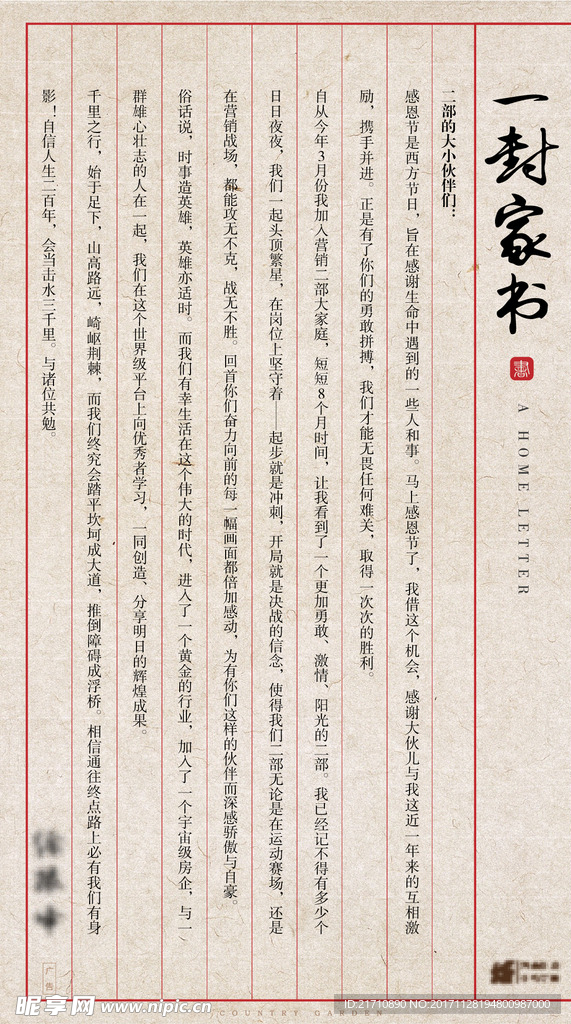 一封家书
書
A HOME LETTER
二部的大小伙伴们：
感恩节是西方节日，旨在感谢生命中遇到的一些人和事。马上感恩节了，我借这个机会，感谢大伙儿与我这近一年来的互相激
励，携手并进。正是有了你们的勇敢拼搏，我们才能无畏任何难关，取得一次次的胜利。
自从今年3月份我加入营销二部大家庭，短短8个月时间，让我看到了一个更加勇敢、激情、阳光的二部。我已经记不得有多少个
日日夜夜，我们一起头顶繁星，在岗位上坚守着——起步就是冲刺，开局就是决战的信念，使得我们二部无论是在运动赛场，还是
在营销战场，都能攻无不克，战无不胜。回首你们奋力向前的每一幅画面都倍加感动，为有你们这样的伙伴而深感骄傲与自豪。
俗话说，时事造英雄，英雄亦适时。而我们有幸生活在这个伟大的时代，进入了一个黄金的行业，加入了一个宇宙级房企，与一
群雄心壮志的人在一起，我们在这个世界级平台上向优秀者学习，一同创造、分享明日的辉煌成果。
千里之行，始于足下，山高路远，崎岖荆棘，而我们终究会踏平坎坷成大道，推倒障碍成浮桥。相信通往终点路上必有我们有身
影！自信人生二百年，会当击水三千里。与诸位共勉。
广告
COUNTRY GARDEN
昵享网 www.nipic.cn
ID:21710890 NO:20171128194800987000